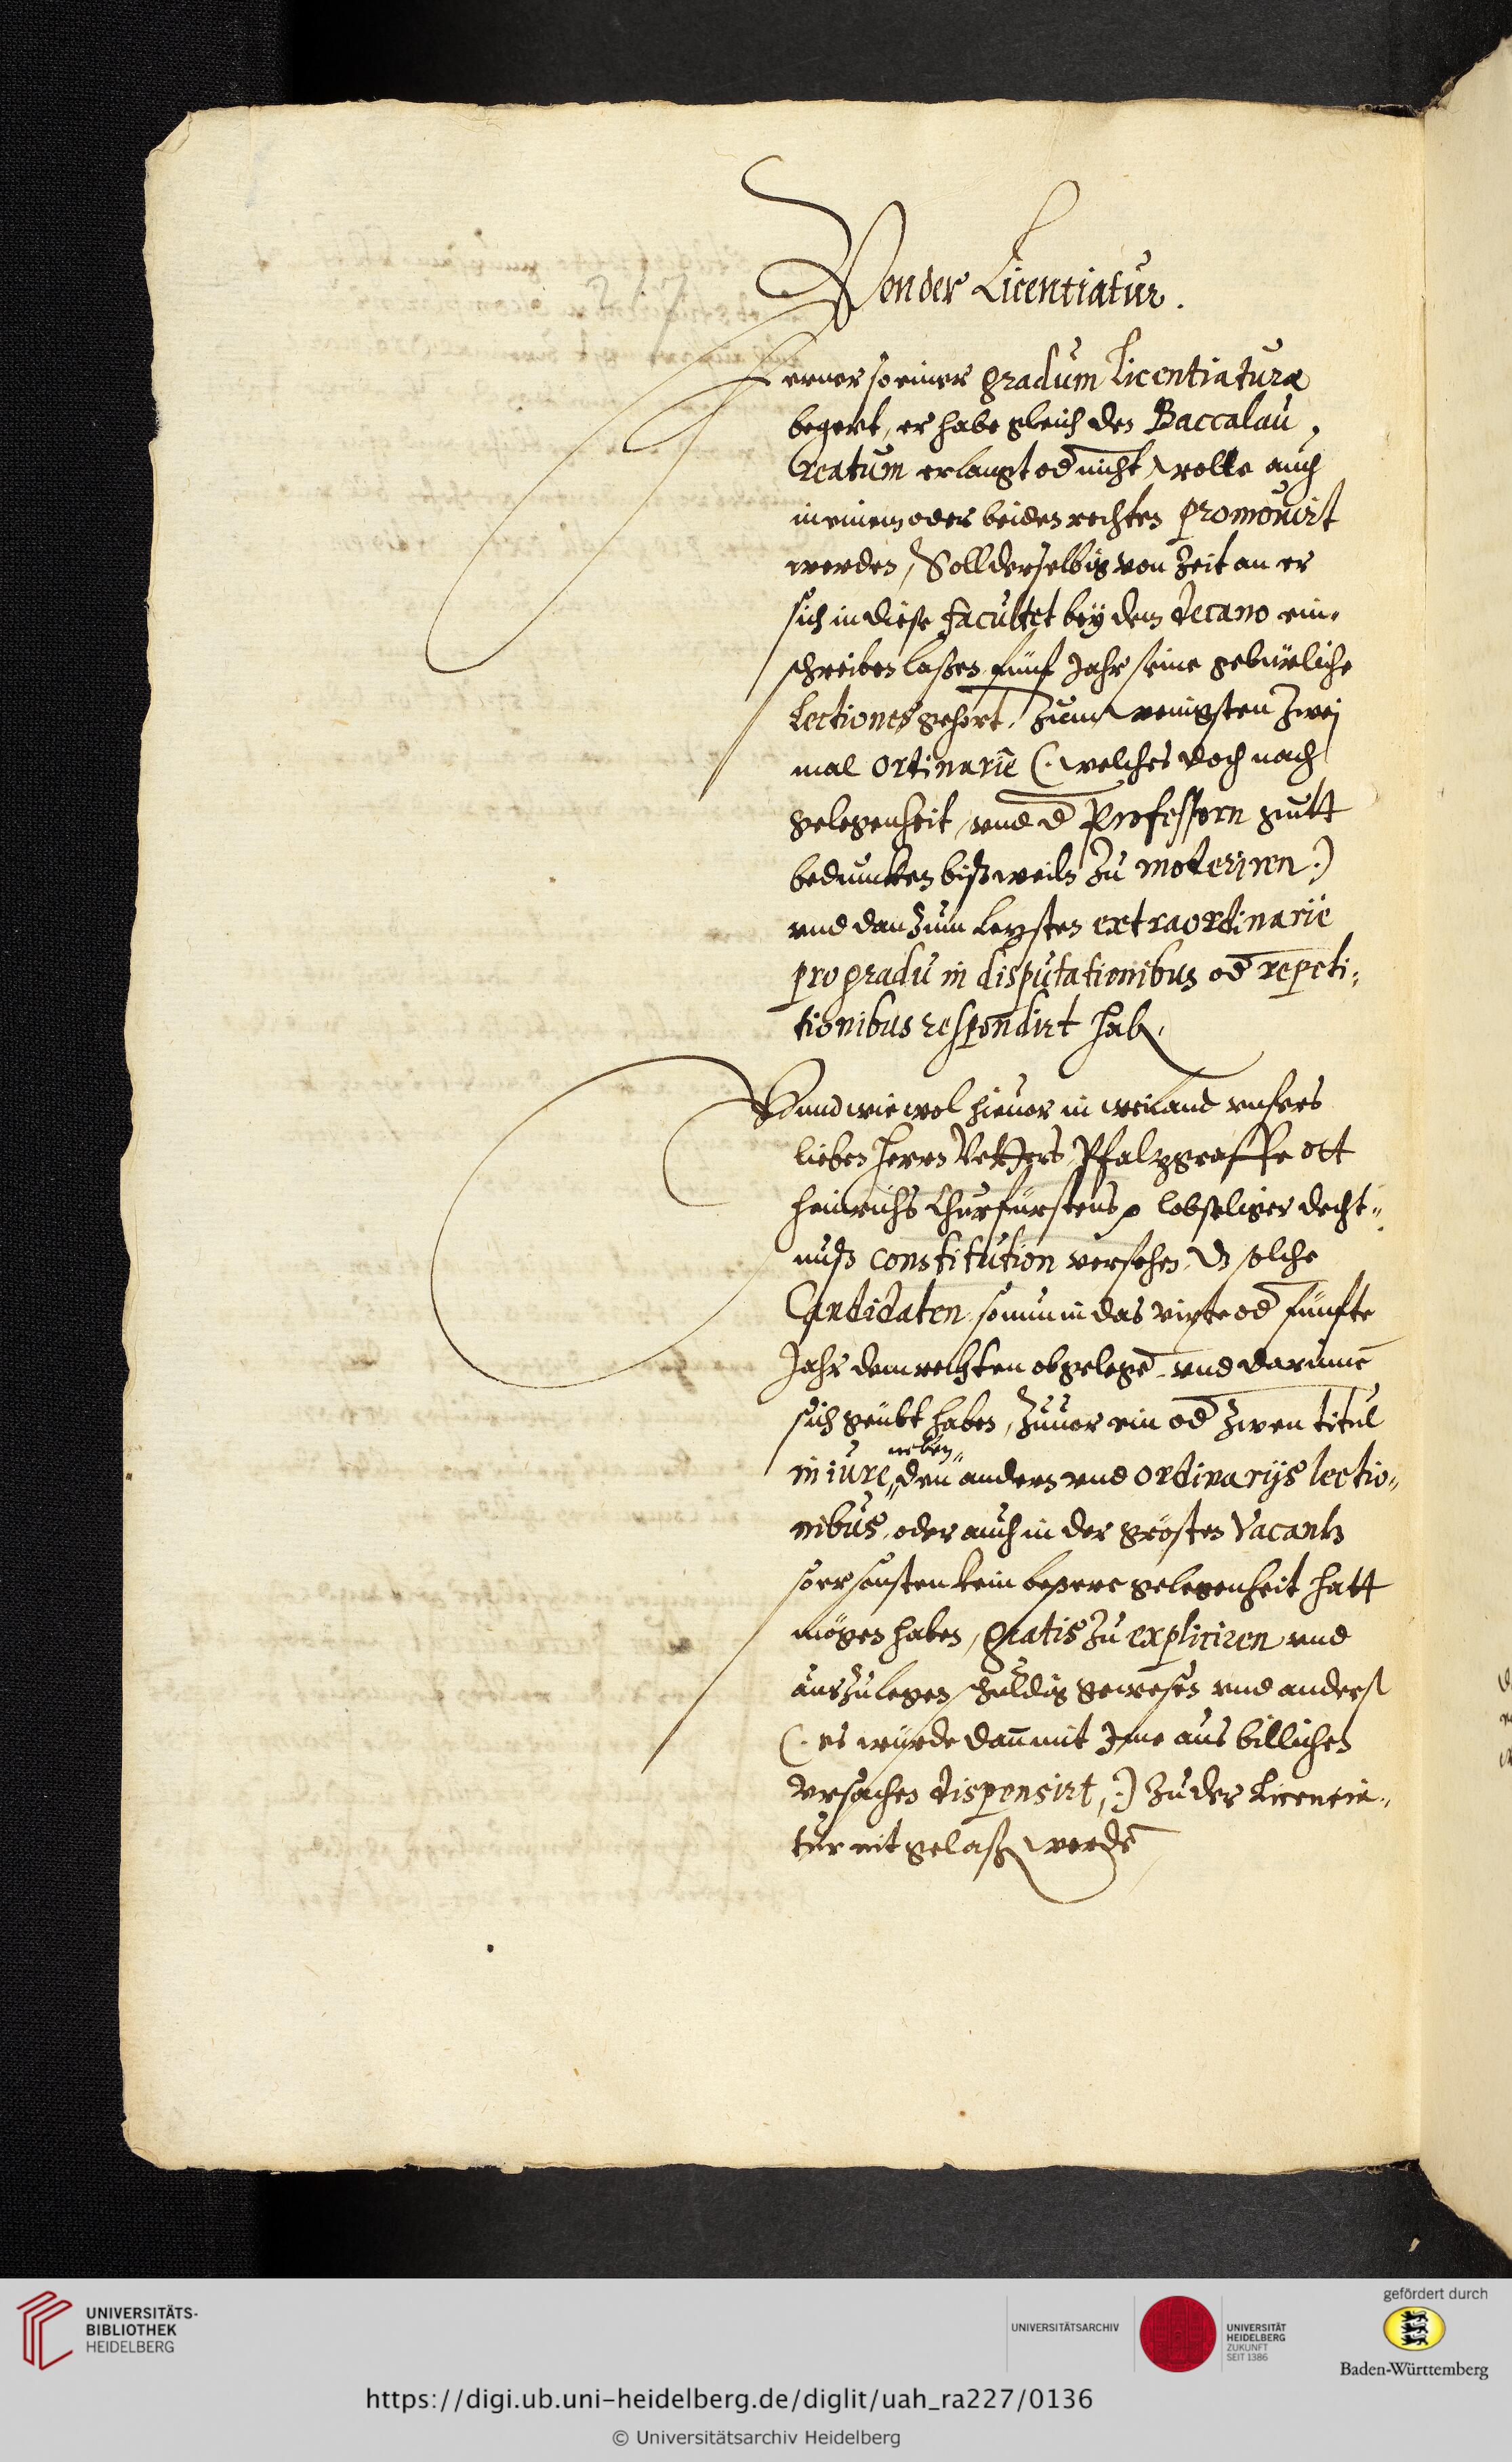 Von der Licentiatur.
Ferner so einer gradum Licentiaturæ
begert, er habe gleich den Baccalau,
reatum erlangt od nicht, wolle auch
in einem oder beiden rechten promouirt
werden, Soll derselbig von Zeit an er
sich in diese Facultet bey dem decano ein-
schreiben laßen fünf Jahr seine gebürliche
Lectiones gehört, Zum wenigsten Zwej
mal ordinariè (: welches doch nach
gelegenheit vnd d Professorn gutt
beduncken bißweiln Zu moderiren :)
vnd dan Zum letzsten extraordinariè
pro gradu in disputationibus od repeti-
tionibus respondirt hab.
Vnnd wiewol hieuor in weiland vnsers
lieben Herrn Vetters, Pfalzgraffe Ott
Heinrichs Churfürstens lobseliger decht-
nuß constitution versehen, dz solche
Candidaten so nun in das virte od fünfte
Jahr dem rechten obgelegē vnd darinnē
sich geübt haben, Zuuor ein od Zwen titul
neben
in iure, den andern vnd ordinarijs lectio-
nibus, oder auch in der grösten Vacantz
so er sonsten kein beßere gelegenheit hatt
mögen haben, gratis Zu expliciren vnd
auszulegen schuldig gewesen vnd anderst
(: es würde dan̄ mit Ime aus billichen
Vrsachen dispensirt, :) Zu der Licentia-
tur nit gelaßen werdē
UNIVERSITÄTS-
BIBLIOTHEK
HEIDELBERG
UNIVERSITÄTSARCHIV
UNIVERSITÄT
HEIDELBERG
ZUKUNFT
SEIT 1386
gefördert durch
Baden-Württemberg
https://digi.ub.uni-heidelberg.de/diglit/uah_ra227/0136
© Universitätsarchiv Heidelberg